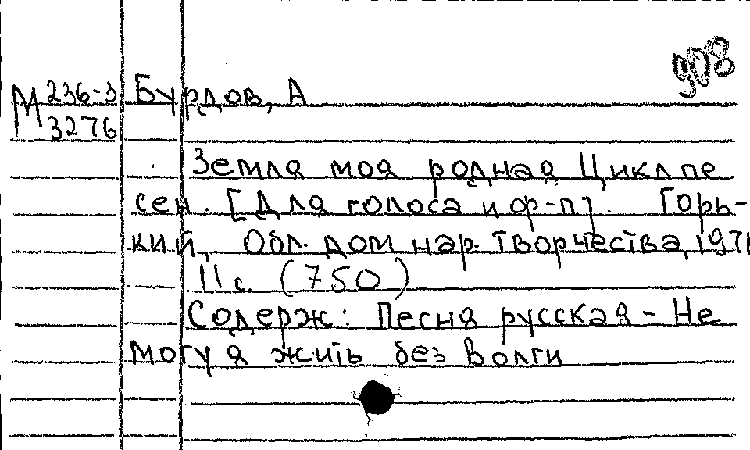 908
М 236-3 Бурдов, А
3276
Земля моя родная Цикл пе
сен. [Для голоса и ф-п]. Горь-
кий, Обл. дом нар. творчества, 1971
11 с. (750)
Содерж: Песня русская - Не
могу я жить без Волги